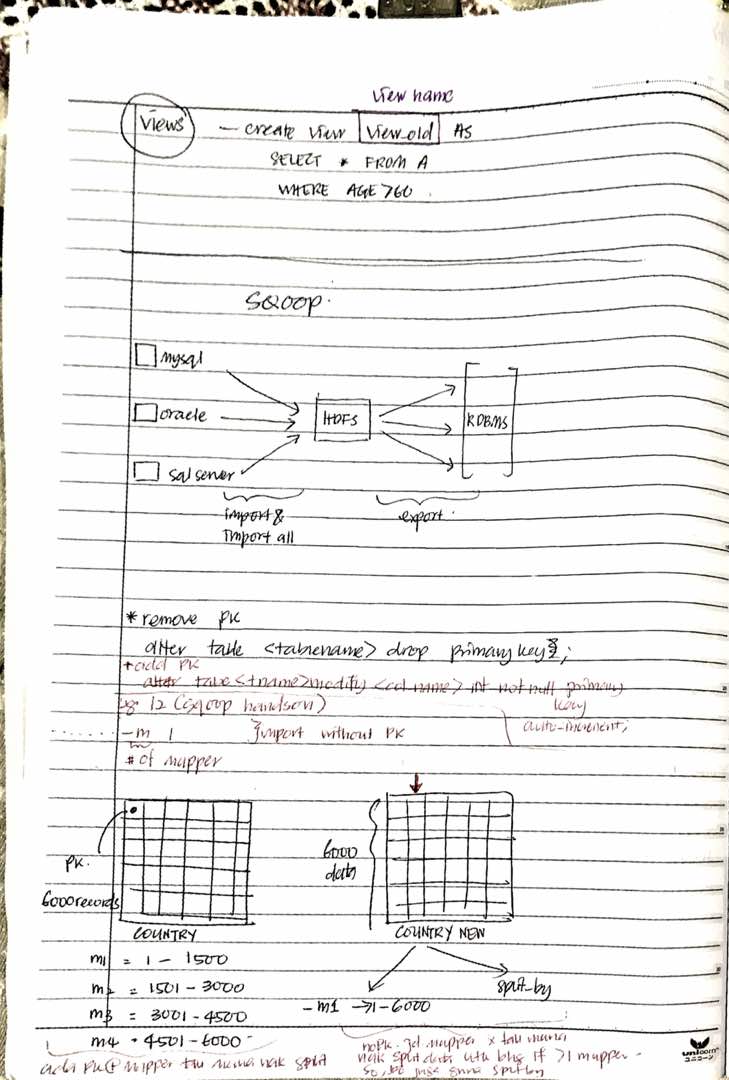 view name
Views - create view view_old AS
SELECT * FROM A
WHERE AGE > 60
SQOOP.
mysql
oracle
sql server
HDFS
RDBMS
import &
import all
export.
* remove PK
alter table <tablename> drop primary key;
+ add PK
alter table <tname> modify <col name> int not null primary
key
auto-increment;
12 (sqoop handson)
-m 1 } import without PK
# of mapper
PK.
6000 records
COUNTRY
6000
data
COUNTRY NEW
m1 = 1 - 1500
m2 = 1501 - 3000
m3 = 3001 - 4500
m4 = 4501 - 6000
-m1 → 1 - 6000
split_by
no PK. jd mapper x tau mana
nak split data utk bhg if >1 mapper.
so, split by
ada PK mapper tau mana nak split
unicorn
ユニコーン